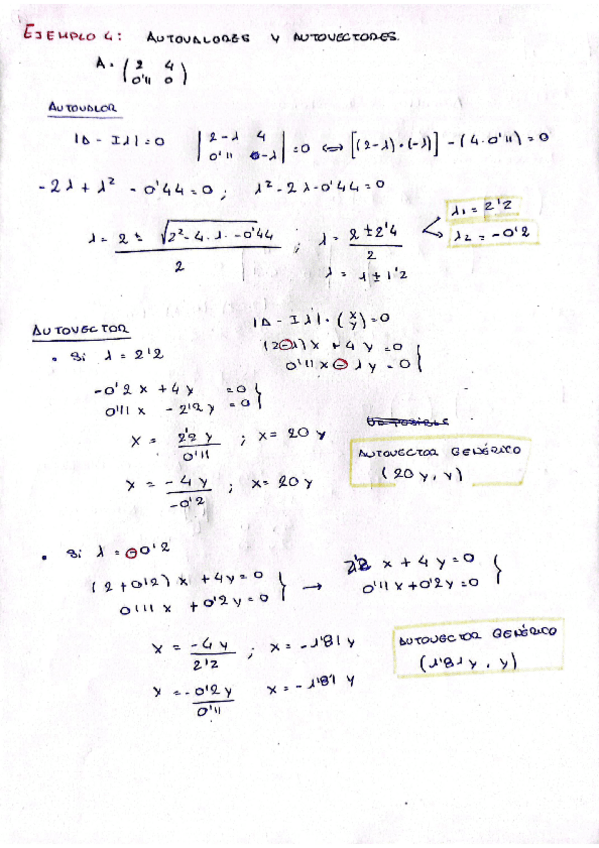 EJEMPLO 4: AUTOVALORES Y AUTOVECTORES.
A = (2 4
0'11 0)
AUTOVALOR
|A - Iλ| = 0 |2-λ 4
0'11 0-λ| = 0 ⇔ [(2-λ)·(-λ)] - (4·0'11) = 0
-2λ + λ² - 0'44 = 0 ; λ² - 2λ - 0'44 = 0
λ = 2 ± √2² - 4·1·-0'44 / 2 ; λ = 2 ± 2'4 / 2
λ = 1 ± 1'2
λ1 = 2'2
λ2 = -0'2
AUTOVECTOR
|A - Iλ| · (x y) = 0
• Si λ = 2'2
(2-λ)x + 4y = 0
0'11x - λy = 0
-0'2x + 4y = 0
0'11x - 2'2y = 0
x = 2'2y / 0'11 ; x = 20y
x = -4y / -0'2 ; x = 20y
AUTOVECTOR GENÉRICO
(20y, y)
• Si λ = -0'2
(2+0'2)x + 4y = 0
0'11x + 0'2y = 0
→
2'2x + 4y = 0
0'11x + 0'2y = 0
x = -4y / 2'2 ; x = -1'81y
x = -0'2y / 0'11 x = -1'81y
AUTOVECTOR GENÉRICO
(1'81y, y)